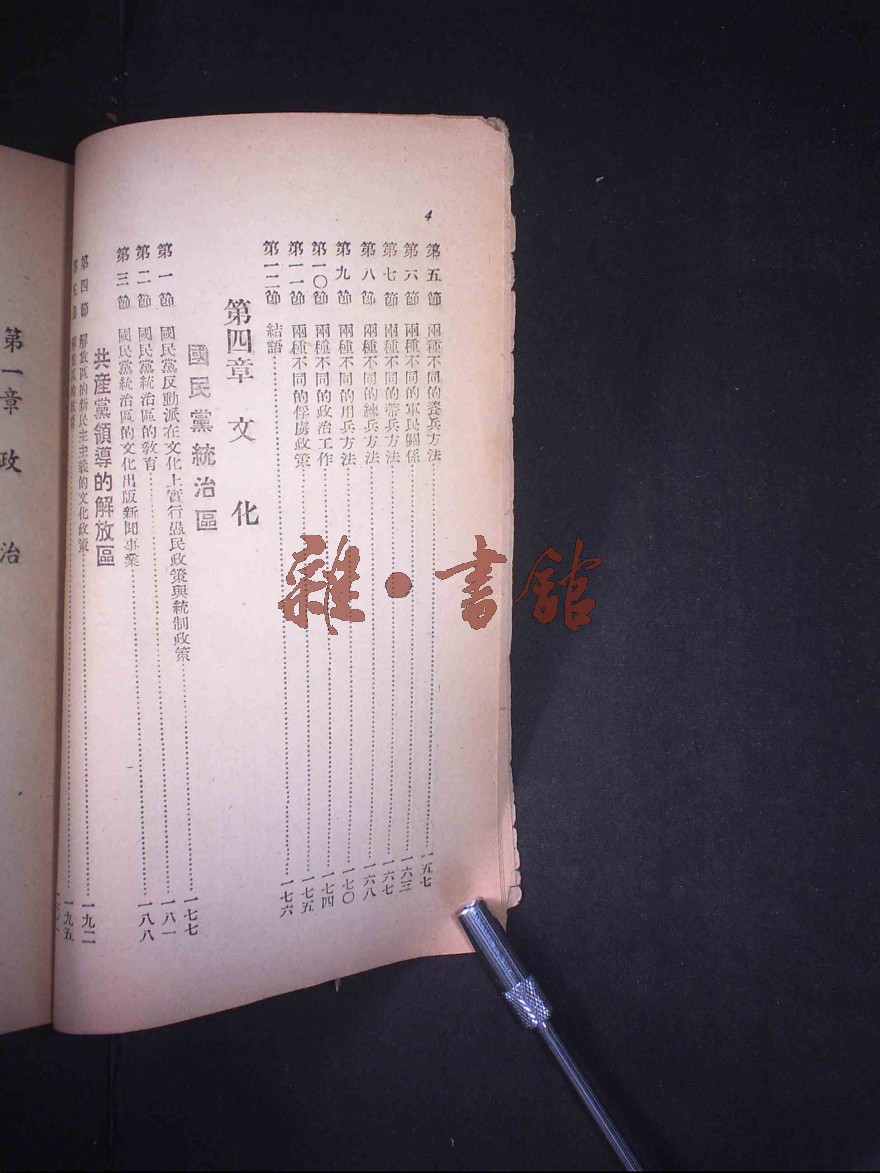 4
第五節 兩種不同的養兵方法 一五七
第六節 兩種不同的軍民關係 一六三
第七節 兩種不同的帶兵方法 一六七
第八節 兩種不同的練兵方法 一六八
第九節 兩種不同的用兵方法 一七〇
第一〇節 兩種不同的政治工作 一七四
第一一節 兩種不同的俘虜政策 一七五
第一二節 結語 一七六
第四章 文化
國民黨統治區
第一節 國民黨反動派在文化上實行愚民政策與統制政策 一七七
第二節 國民黨統治區的敎育 一八一
第三節 國民黨統治區的文化出版新聞事業 一八八
共產黨領導的解放區
第四節 解放區的新民主主義的文化政策 一九二
一九五
第一章 政治
雜·書館